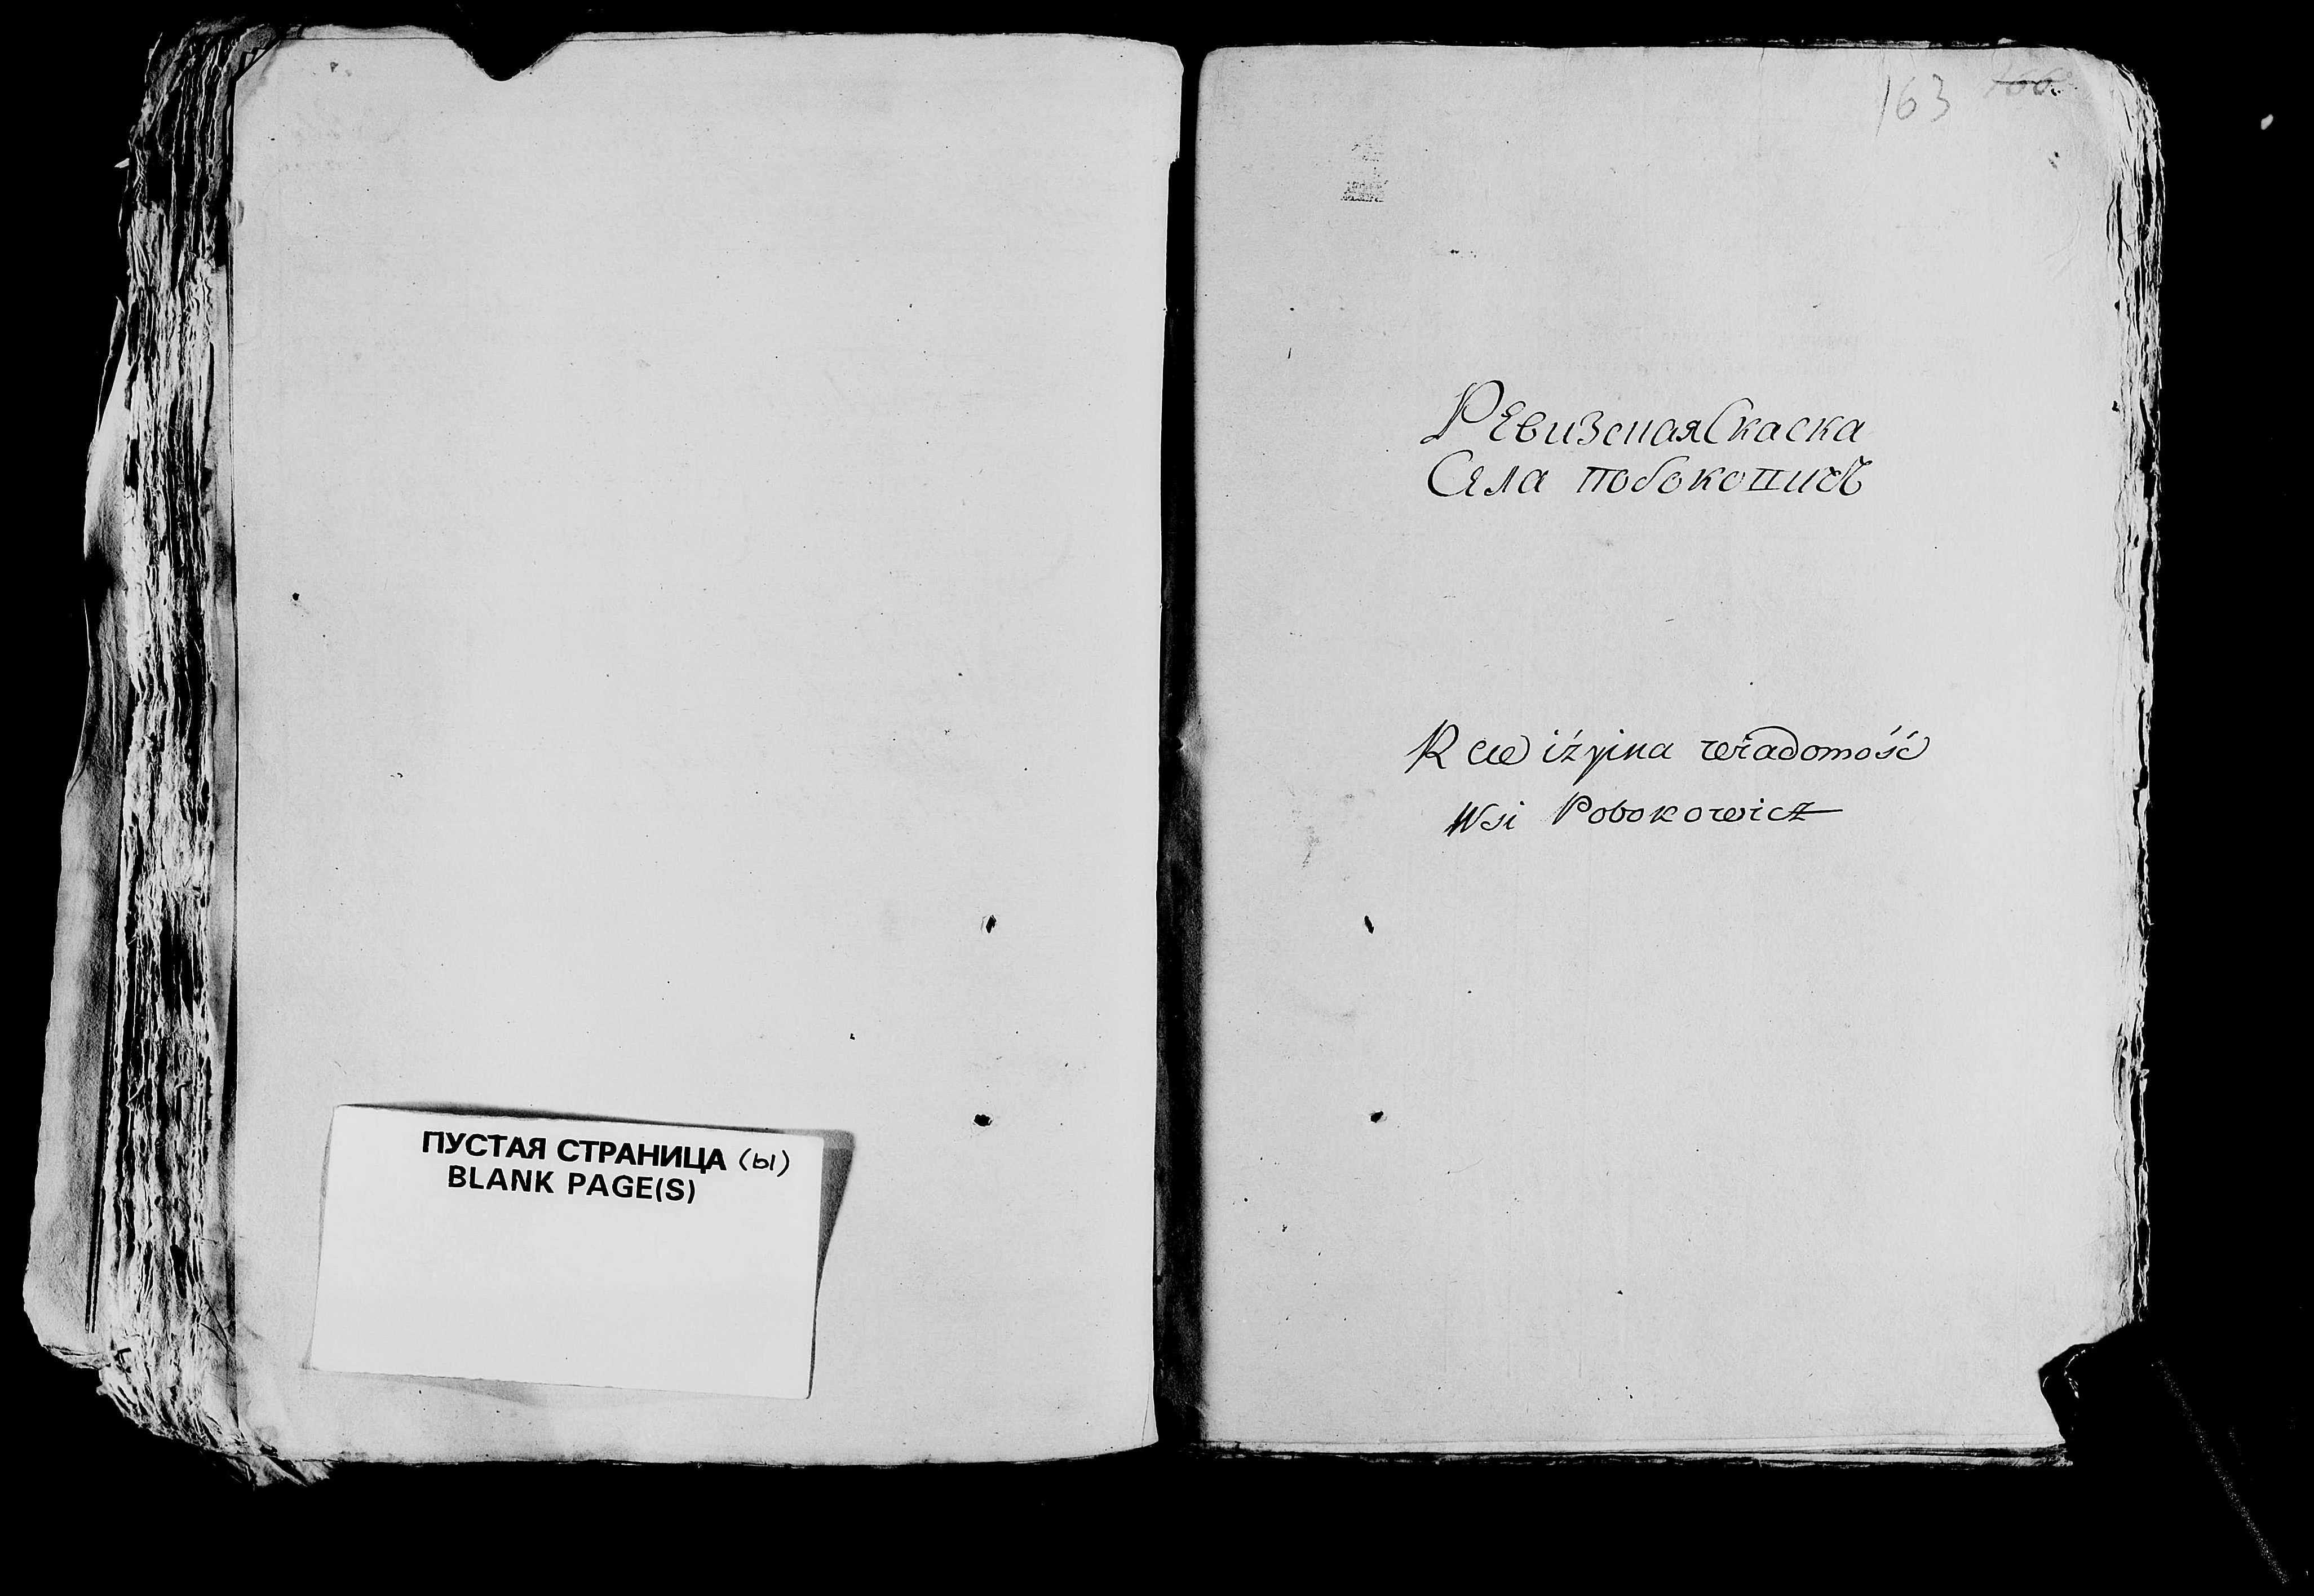 ПУСТАЯ СТРАНИЦА (Ы)
BLANK PAGE(S)
163
Ревизсная Скаска
Села
Rewiźyina wiadomość
Wsi Pobokowicz